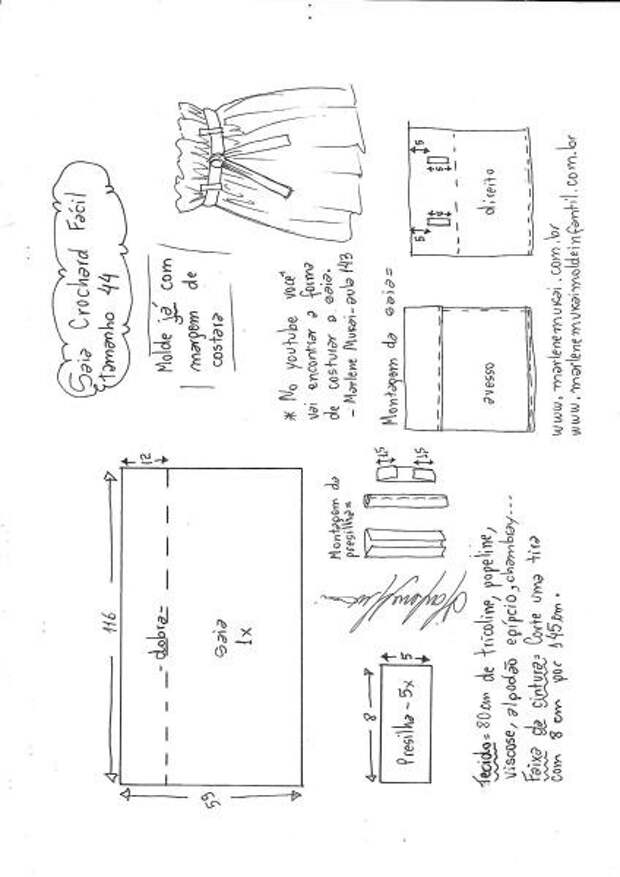 Saia Crochard Fácil
tamanho 44
Molde já com
margem de
costura
* No youtube você
vai encontrar a forma
de costurar a saia.
- Marlene Mukai - aula 143
Montagem da saia=
5
5
5
5
direito
avesso
www.marlenemukai.com.br
www.marlenemukaimoldeinfantil.com.br
116
12
dobra
saia
1x
59
Montagem da
presilha=
1,5
1,5
8
5
Presilha - 5x
Tecido= 80 cm de tricoline, popeline,
viscose, algodão egípcio, chambray...
Faixa de cintura= Corte uma tira
com 8 cm por 145 cm.